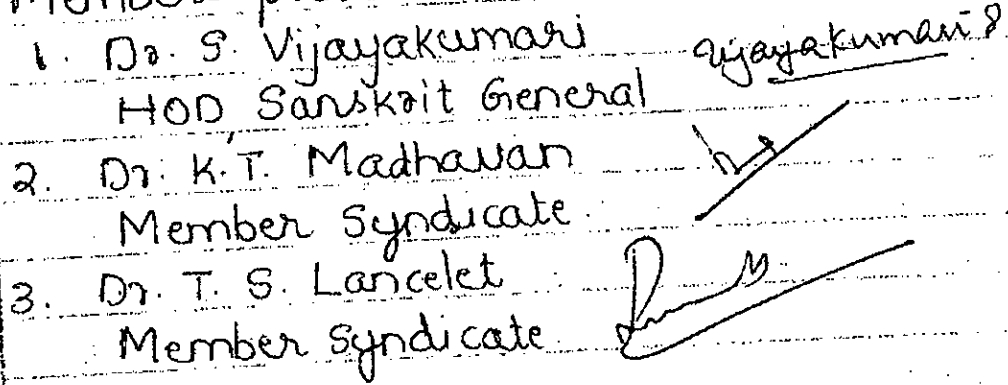 Member
1. Dr. S. Vijayakumari Vijayakumari S
HOD Sanskrit General
2. Dr. K.T. Madhavan
Member Syndicate.
3. Dr. T. S. Lancelet
Member Syndicate